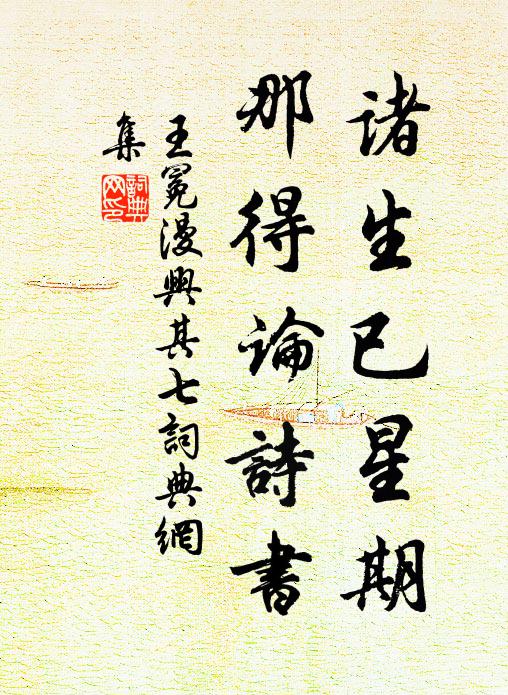 諸生已星期
那得論詩書
王冕漫興其七詞典網
集
詞典
网印